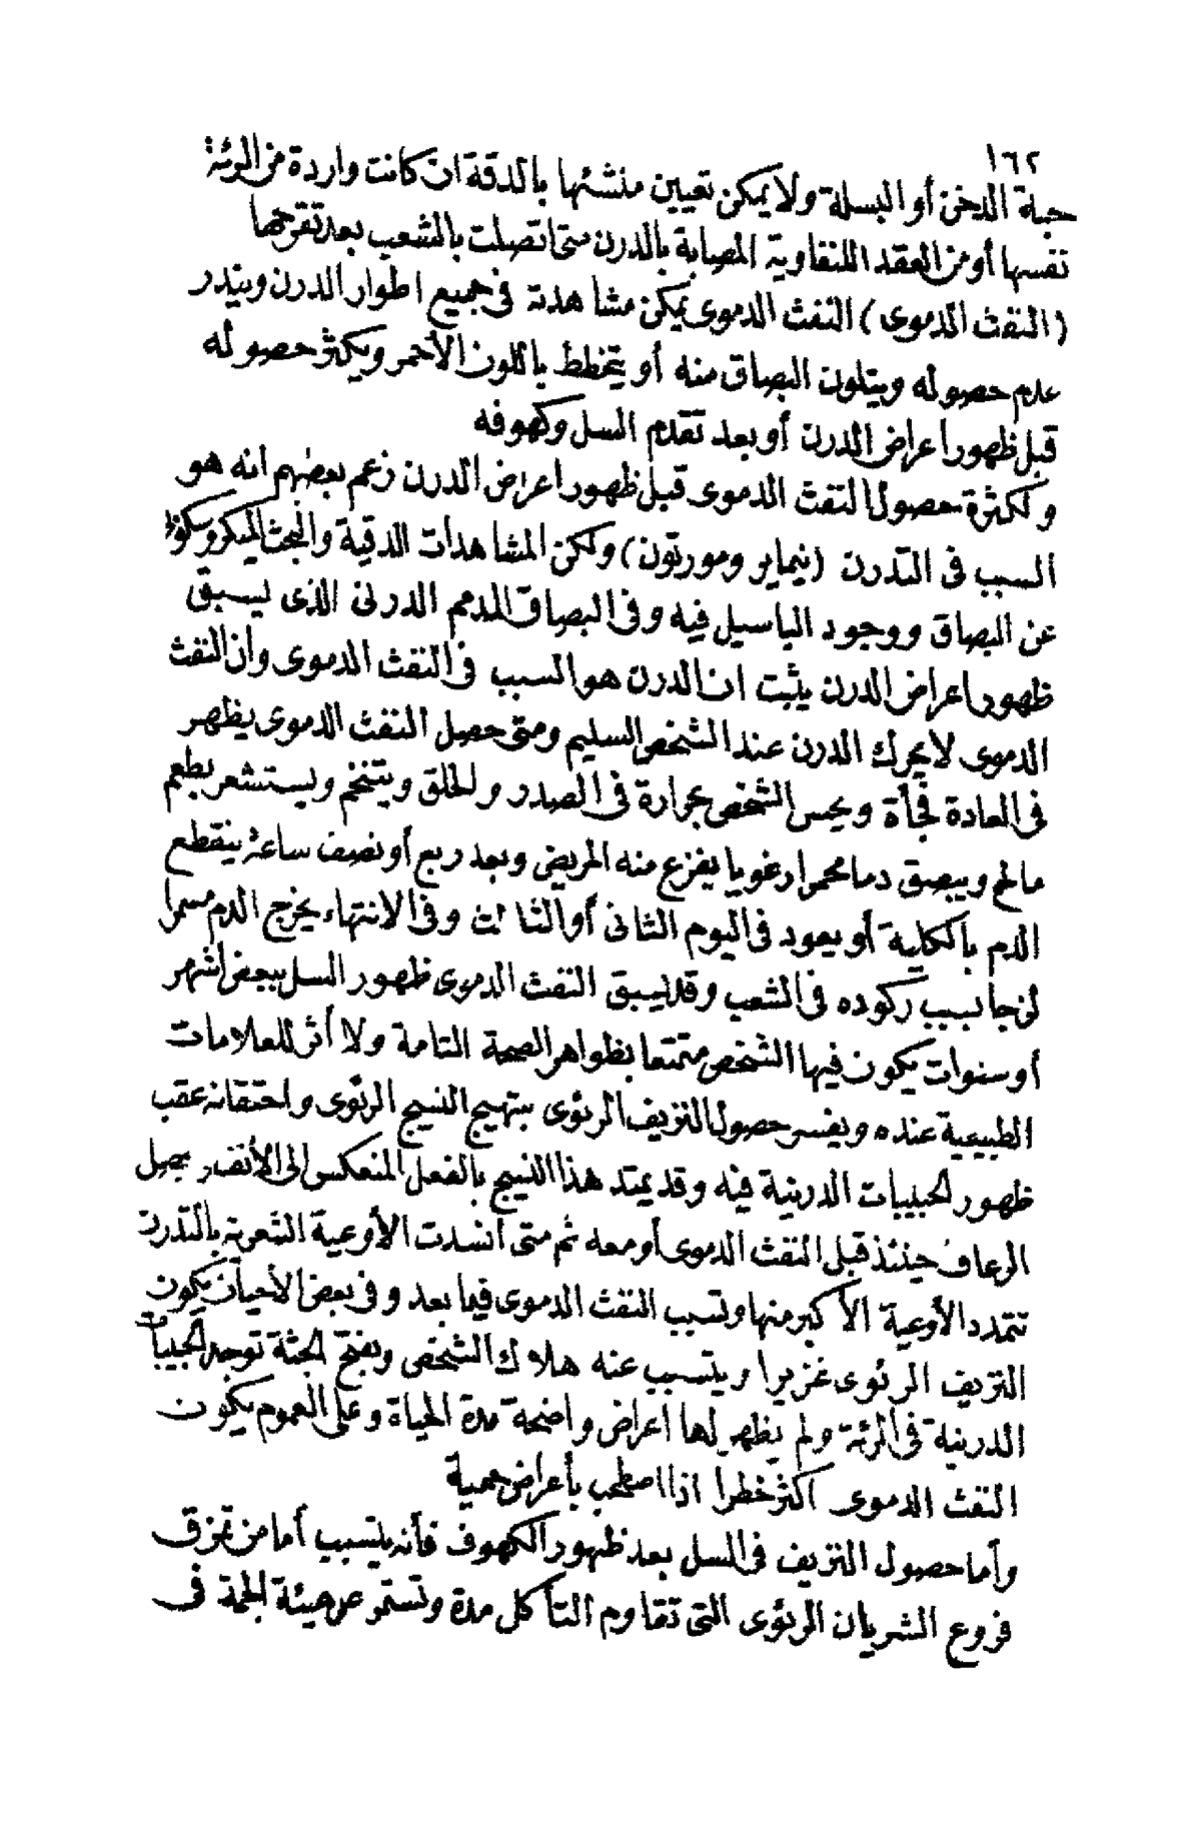 ١٦٢
حبة الدخن أو البسلة ولا يمكن تعيين منشئها بالدقة ان كانت واردة من الرئة
نفسها أو من العقد اللنفاوية المصابة بالدرن متى اتصلت بالشعب بعد تقرحها
(النفث الدموى) النفث الدموى يمكن مشاهدته فى جميع اطوار الدرن ويندر
عدم حصوله ويتلون البصاق منه أو يتخطط باللون الأحمر ويكثر حصوله
قبل ظهور اعراض الدرن أو بعد تقدم السل وكهوفه
ولكثرة حصول النفث الدموى قبل ظهور اعراض الدرن زعم بعضهم انه هو
السبب فى التدرن (نيماير ومورتون) ولكن المشاهدات الدقية والبحث الميكروسكوبى
عن البصاق ووجود الباسيل فيه وفى البصاق المدمم الدرنى الذى يسبق
ظهور اعراض الدرن يثبت ان الدرن هو السبب فى النفث الدموى وأن النفث
الدموى لا يحرك الدرن عند الشخص السليم ومتى حصل النفث الدموى يظهر
فى العادة فجأة ويحس الشخص بحرارة فى الصدر والحلق ويتنخم ويستشعر بطعم
مالح ويبصق دما محمرا رغويا يفزع منه المريض وبعد ربع أو نصف ساعة ينقطع
الدم بالكلية أو يعود فى اليوم الثانى أو الثالث وفى الانتهاء يخرج الدم مسمرا
لزجا بسبب ركوده فى الشعب وقد يسبق النفث الدموى ظهور السل ببعض أشهر
أو سنوات يكون فيها الشخص متمتعا بظواهر الصحة التامة ولا أثر للعلامات
الطبيعية عنده ويفسر حصول النزيف الرئوى بتهيج النسيج الرئوى واحتقانه عقب
ظهور الحبيبات الدرنية فيه وقد يمتد هذا النسيج بالفعل المنعكس الى الأنف ويحصل
الرعاف حينئذ قبل النفث الدموى أو معه ثم متى انسدت الأوعية الشعرية بالتدرن
تتمدد الأوعية الأكبر منها وتسبب النفث الدموى فيما بعد وفى بعض الأحيان يكون
النزيف الرئوى غزيرا ويتسبب عنه هلاك الشخص وبفتح الجثة توجد الحبيبات
الدرنية فى الرئة ولم يظهر لها اعراض واضحة مدة الحياة وعلى العموم يكون
النفث الدموى أكثر خطرا اذا اصطحب بأعراض حمية
وأما حصول النزيف فى السل بعد ظهور الكهوف فأنه يتسبب أما من تمزق
فروع الشريان الرئوى التى تقاوم التأكل مدة وتستمر على هيئة الجمة فى